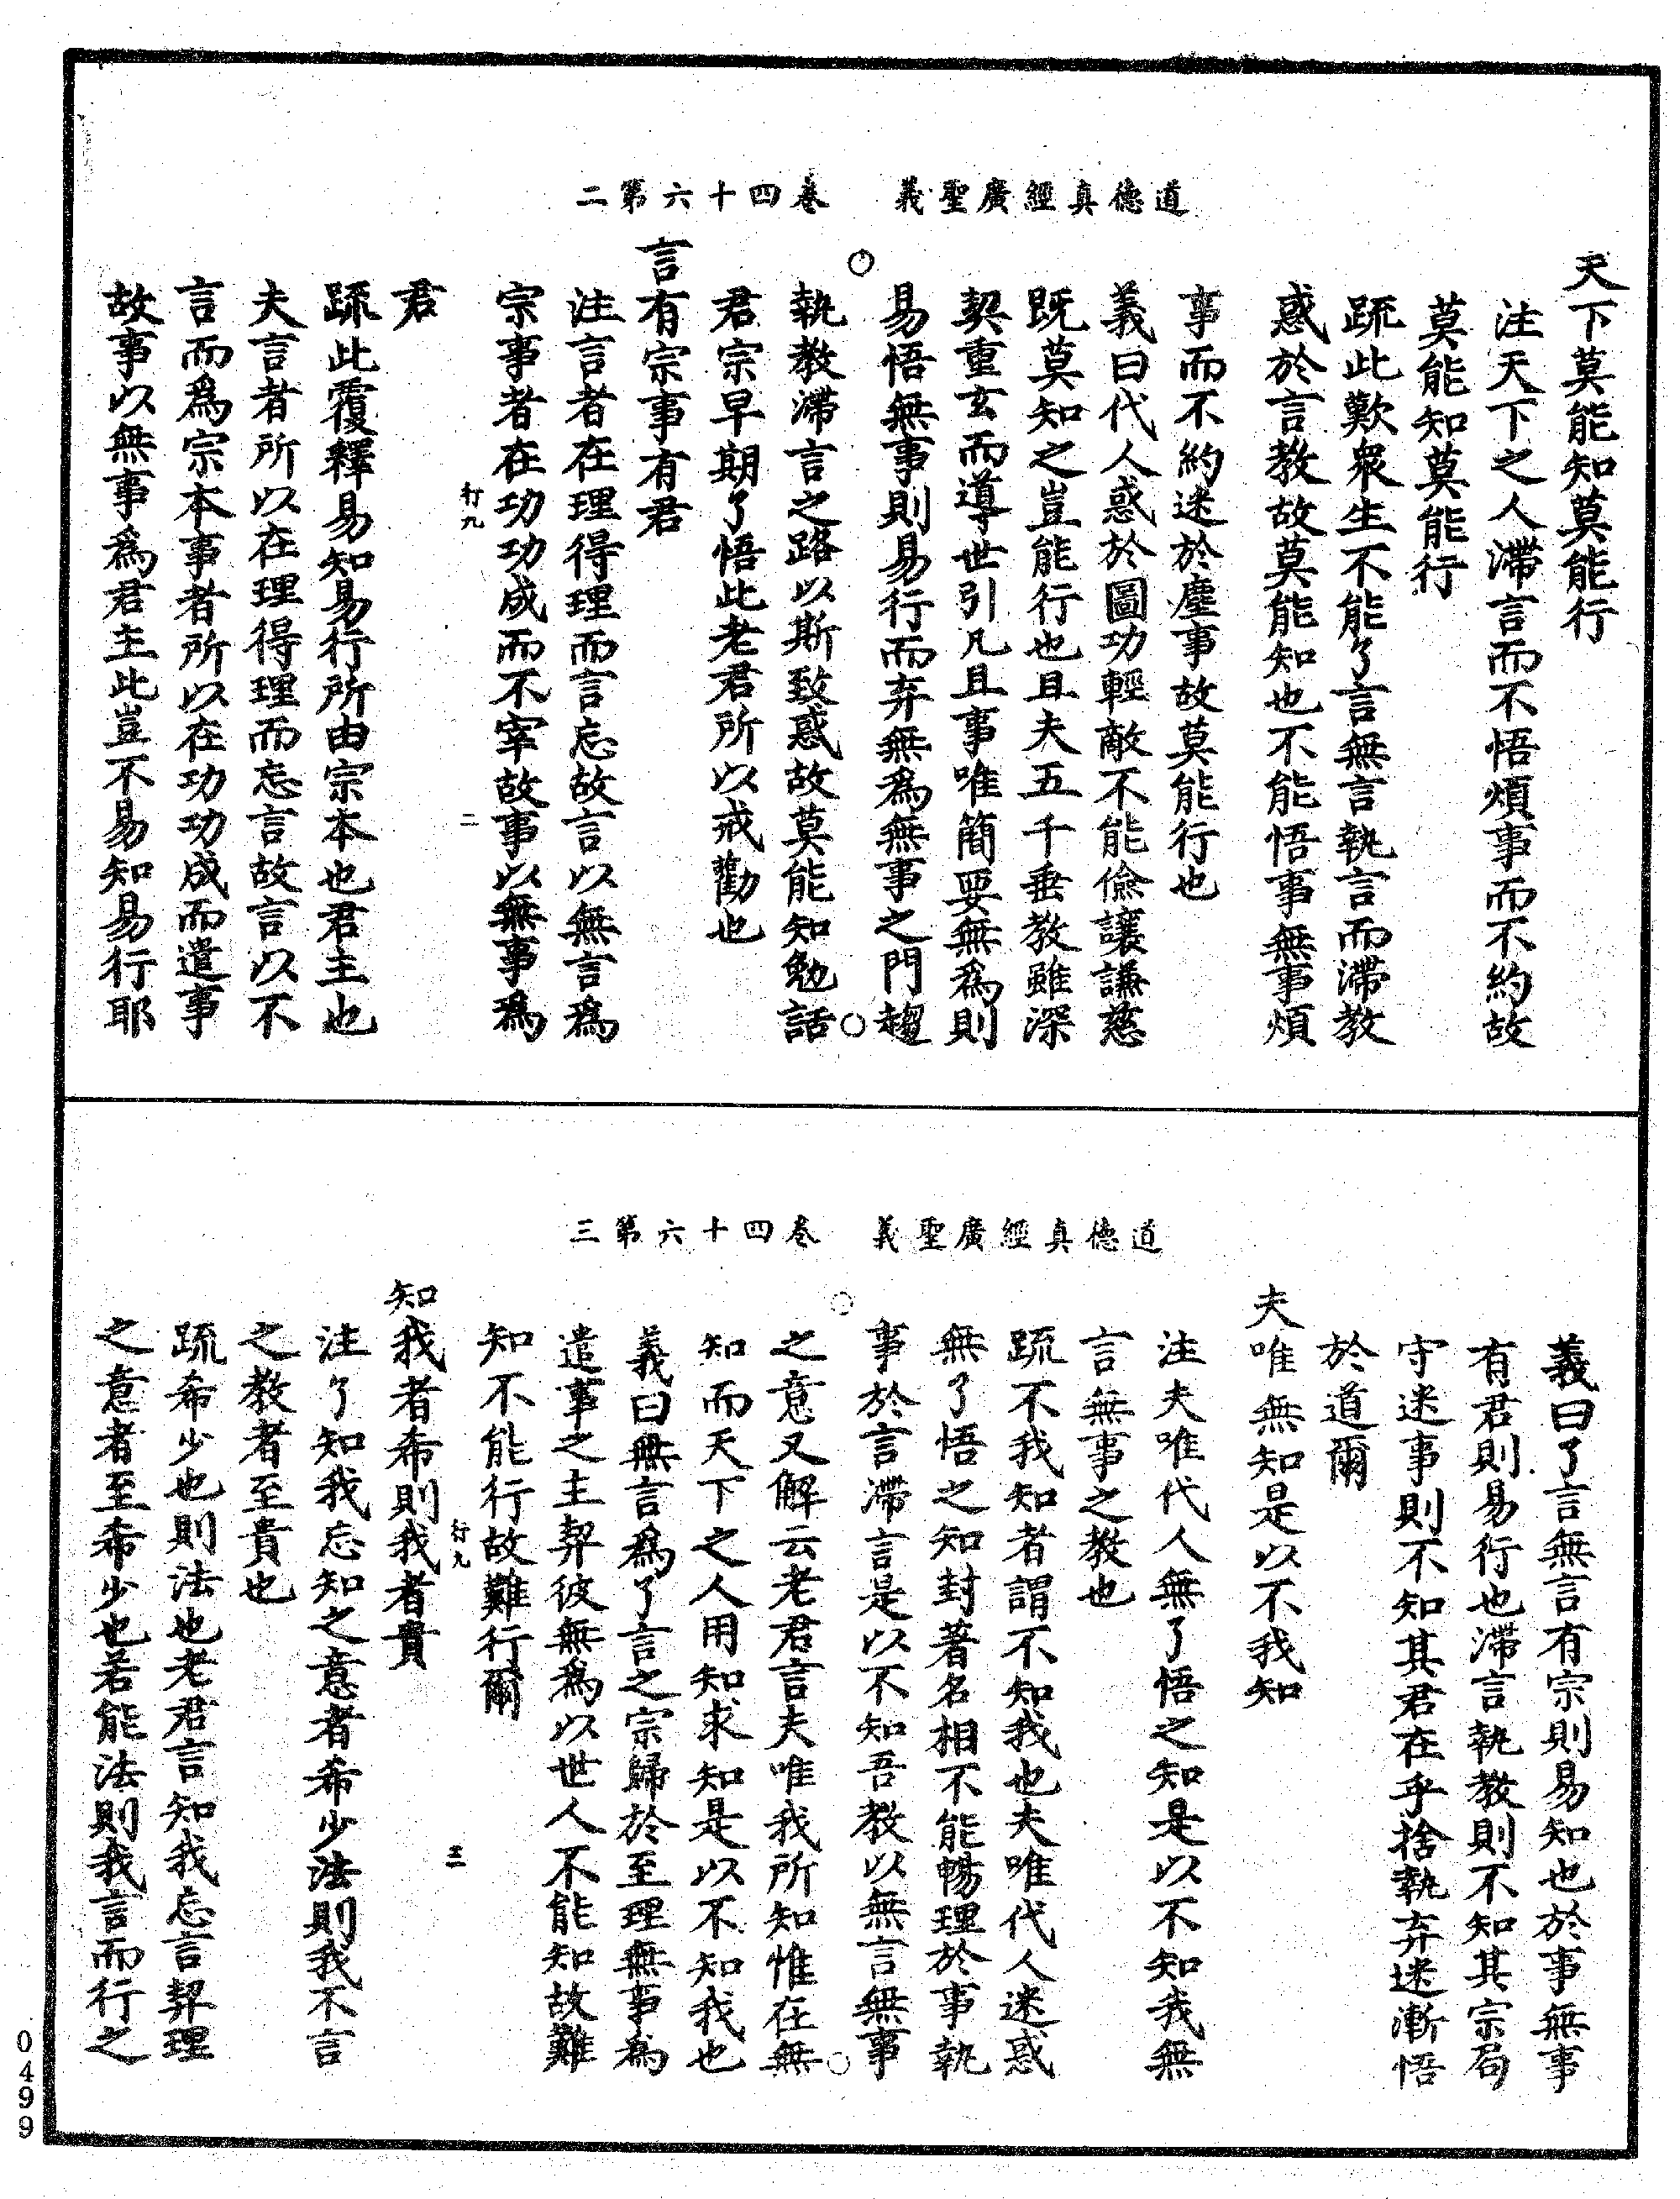 道德真經廣聖義　卷四十六第二
天下莫能知莫能行
注天下之人滯言而不悟煩事而不約故
莫能知莫能行
疏此歎衆生不能了言無言執言而滯教
惑於言教故莫能知也不能悟事無事煩
事而不約迷於塵事故莫能行也
義曰代人惑於圖功輕敵不能儉讓謙慈
既莫知之豈能行也且夫五千垂教雖深
契重玄而導世引凡且事唯簡要無爲則
易悟無事則易行而弃無爲無事之門趨
執教滯言之路以斯致惑故莫能知勉話
君宗早期了悟此老君所以戒勸也
言有宗事有君
注言者在理得理而言忘故言以無言爲
宗事者在功功成而不宰故事以無事爲
行九　二
君
疏此覆釋易知易行所由宗本也君主也
夫言者所以在理得理而忘言故言以不
言而爲宗本事者所以在功功成而遣事
故事以無事爲君主此豈不易知易行耶
道德真經廣聖義　卷四十六第三
義曰了言無言有宗則易知也於事無事
有君則易行也滯言執教則不知其宗局
守迷事則不知其君在乎捨執弃迷漸悟
於道爾
夫唯無知是以不我知
注夫唯代人無了悟之知是以不知我無
言無事之教也
疏不我知者謂不知我也夫唯代人迷惑
無了悟之知封著名相不能暢理於事執
事於言滯言是以不知吾教以無言無事
之意又解云老君言夫唯我所知惟在無
知而天下之人用知求知是以不知我也
義曰無言爲了言之宗歸於至理無事爲
遣事之主契彼無爲以世人不能知故難
知不能行故難行爾
行九　三
知我者希則我者貴
注了知我忘知之意者希少法則我不言
之教者至貴也
疏希少也則法也老君言知我忘言契理
之意者至希少也若能法則我言而行之
0499